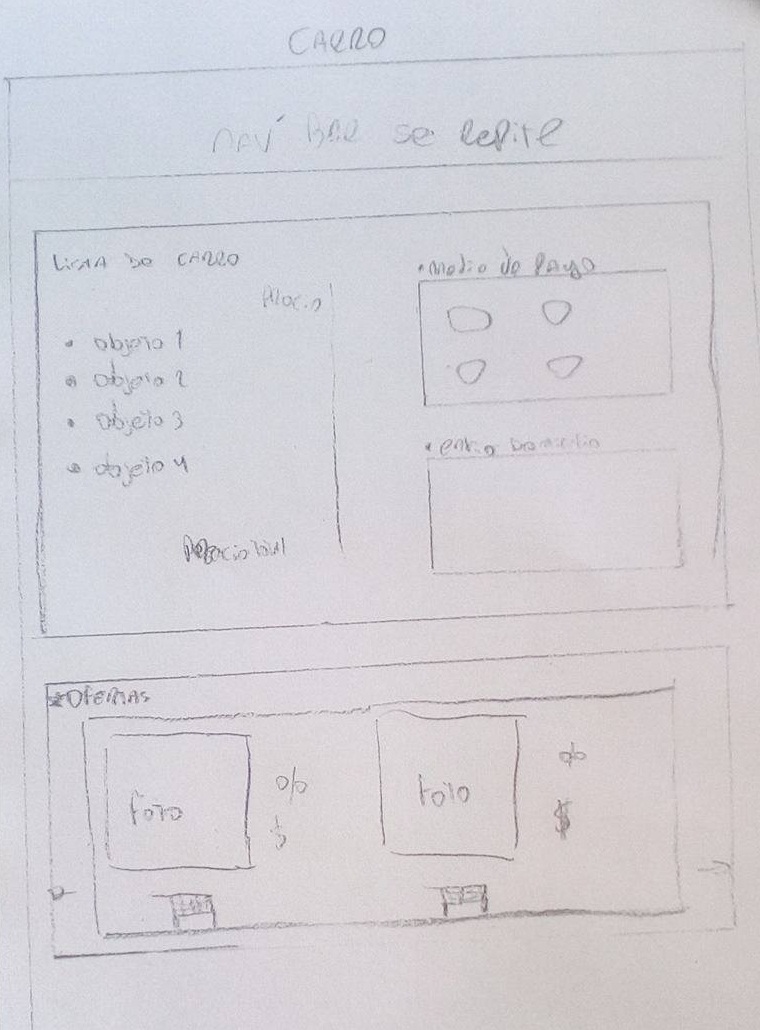 CARRO
NAV BAR se repite
LISTA DE CARRO
Precio
• objeto 1
• objeto 2
• objeto 3
• objeto 4
Precio total
• Medio de Pago
• envio Domicilio
OFERTAS
Foto
%
$
Foto
%
$